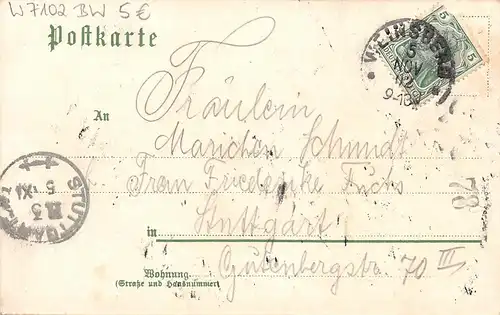 W7102 BW 5€
Postkarte
WEINSBERG
5
NOV
9-10V
5
5
An
Fräulein
Mariechen Schmidt
Frau Friederike Fuchs
in Stuttgart
Gutenbergstr. 70 III
Wohnung
(Straße und Hausnummer)
STUTTGART
5 XI
78